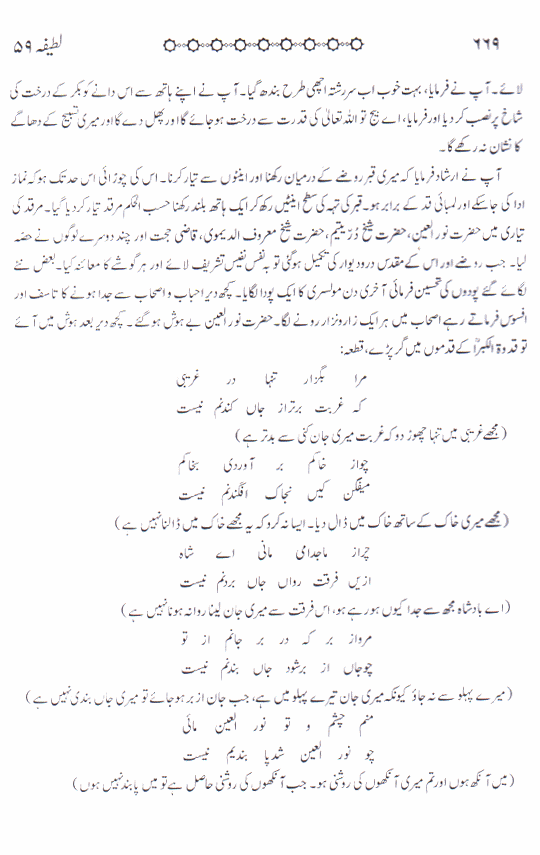 ۶۶۹ لطیفہ ۵۹
لائے۔ آپ نے فرمایا، بہت خوب اب سر رشتہ اچھی طرح بندھ گیا۔ آپ نے اپنے ہاتھ سے اس دانے کو بکر کے درخت کی
شاخ پر نصب کر دیا اور فرمایا، اے بیج تو اللہ تعالیٰ کی قدرت سے درخت ہو جائے گا اور پھل دے گا اور میری تسبیح کے دھاگے
کا نشان نہ رکھے گا۔
آپ نے ارشاد فرمایا کہ میری قبر روضے کے درمیان رکھنا اور اینٹوں سے تیار کرنا۔ اس کی چوڑائی اس حد تک ہو کہ نماز
ادا کی جا سکے اور لمبائی قد کے برابر ہو۔ قبر کی تہہ کی سطح اینٹیں رکھ کر ایک ہاتھ بلند رکھنا حسب الحکم مرقد تیار کر دیا گیا۔ مرقد کی
تیاری میں حضرت نور العین، حضرت شیخ دُرّ یتیم، حضرت شیخ معروف الدیموی، قاضی حجت اور چند دوسرے لوگوں نے حصّہ
لیا۔ جب روضے اور اس کے مقدس در و دیوار کی تکمیل ہو گئی تو بہ نفس نفیس تشریف لائے اور ہر گوشے کا معائنہ کیا۔ بعض نئے
لگائے گئے پودوں کی تحسین فرمائی آخری دن مولسری کا ایک پودا لگایا۔ کچھ دیر احباب و اصحاب سے جدا ہونے کا تاسف اور
افسوس فرماتے رہے اصحاب میں ہر ایک زار و نزار رونے لگا۔ حضرت نور العین بے ہوش ہو گئے۔ کچھ دیر بعد ہوش میں آئے
تو قدوۃ الکبراؒ کے قدموں میں گر پڑے، قطعہ:
مرا بگزار تنہا در غریبی
کہ غربت برتر از جاں کندنم نیست
(مجھے غریبی میں تنہا چھوڑ دو کہ غربت میری جان کنی سے بدتر ہے)
چو از خاکم بر آوردی بخاکم
میفگن کیں نجاک افگندنم نیست
(مجھے میری خاک کے ساتھ خاک میں ڈال دیا۔ ایسا نہ کرو کہ یہ مجھے خاک میں ڈالنا نہیں ہے)
چرا از ما جدا می مانی اے شاہ
ازیں فرقت رواں جاں بردنم نیست
(اے بادشاہ مجھ سے جدا کیوں ہو رہے ہو، اس فرقت سے میری جان لینا روانہ ہونا نہیں ہے)
مرو از بر کہ در بر جانم از تو
چو جاں از بر شود جاں بندنم نیست
(میرے پہلو سے نہ جاؤ کیونکہ میری جان تیرے پہلو میں ہے، جب جان از بر ہو جائے تو میری جاں بندی نہیں ہے)
منم چشم و تو نور العین مائی
چو نور العین شد پا بندیم نیست
(میں آنکھ ہوں اور تم میری آنکھوں کی روشنی ہو۔ جب آنکھوں کی روشنی حاصل ہے تو میں پابند نہیں ہوں)